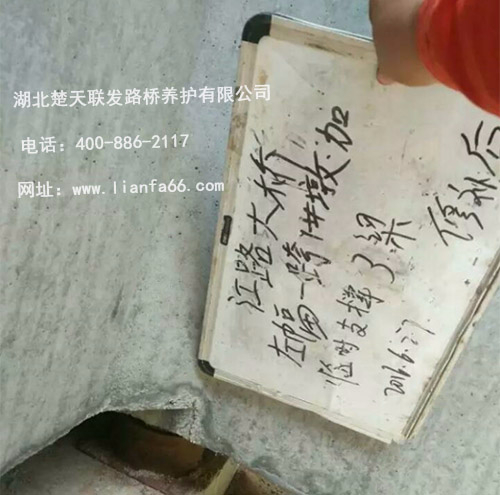 湖北楚天联发路桥养护有限公司
电话：400-886-2117
网址：www.lianfa66.com
江路大桥
左幅一跨1#墩加
临时支撑了梁
2016.6.27